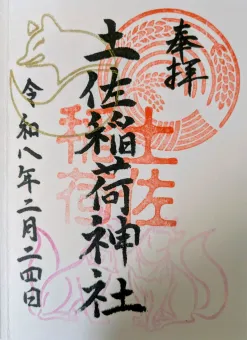 奉拝
土佐稲荷神社
土佐
稲荷
令和八年二月二四日